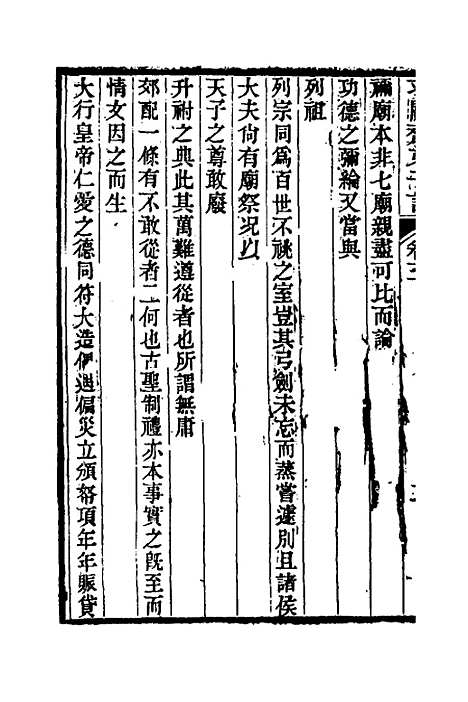 禰廟本非七廟親盡可比而論
功德之彌綸又當與
列祖
列宗同為百世不祧之室豈其弓劍未忘而蒸嘗遽別且諸侯
大夫尙有廟祭况以
天子之尊敢廢
升祔之典此其萬難遵從者也所謂無庸
郊配一條有不敢從者二何也古聖制禮亦本事實之旣至而
情文因之而生
大行皇帝仁愛之德同符大造偶遇偏災立頒帑項年年賑貸